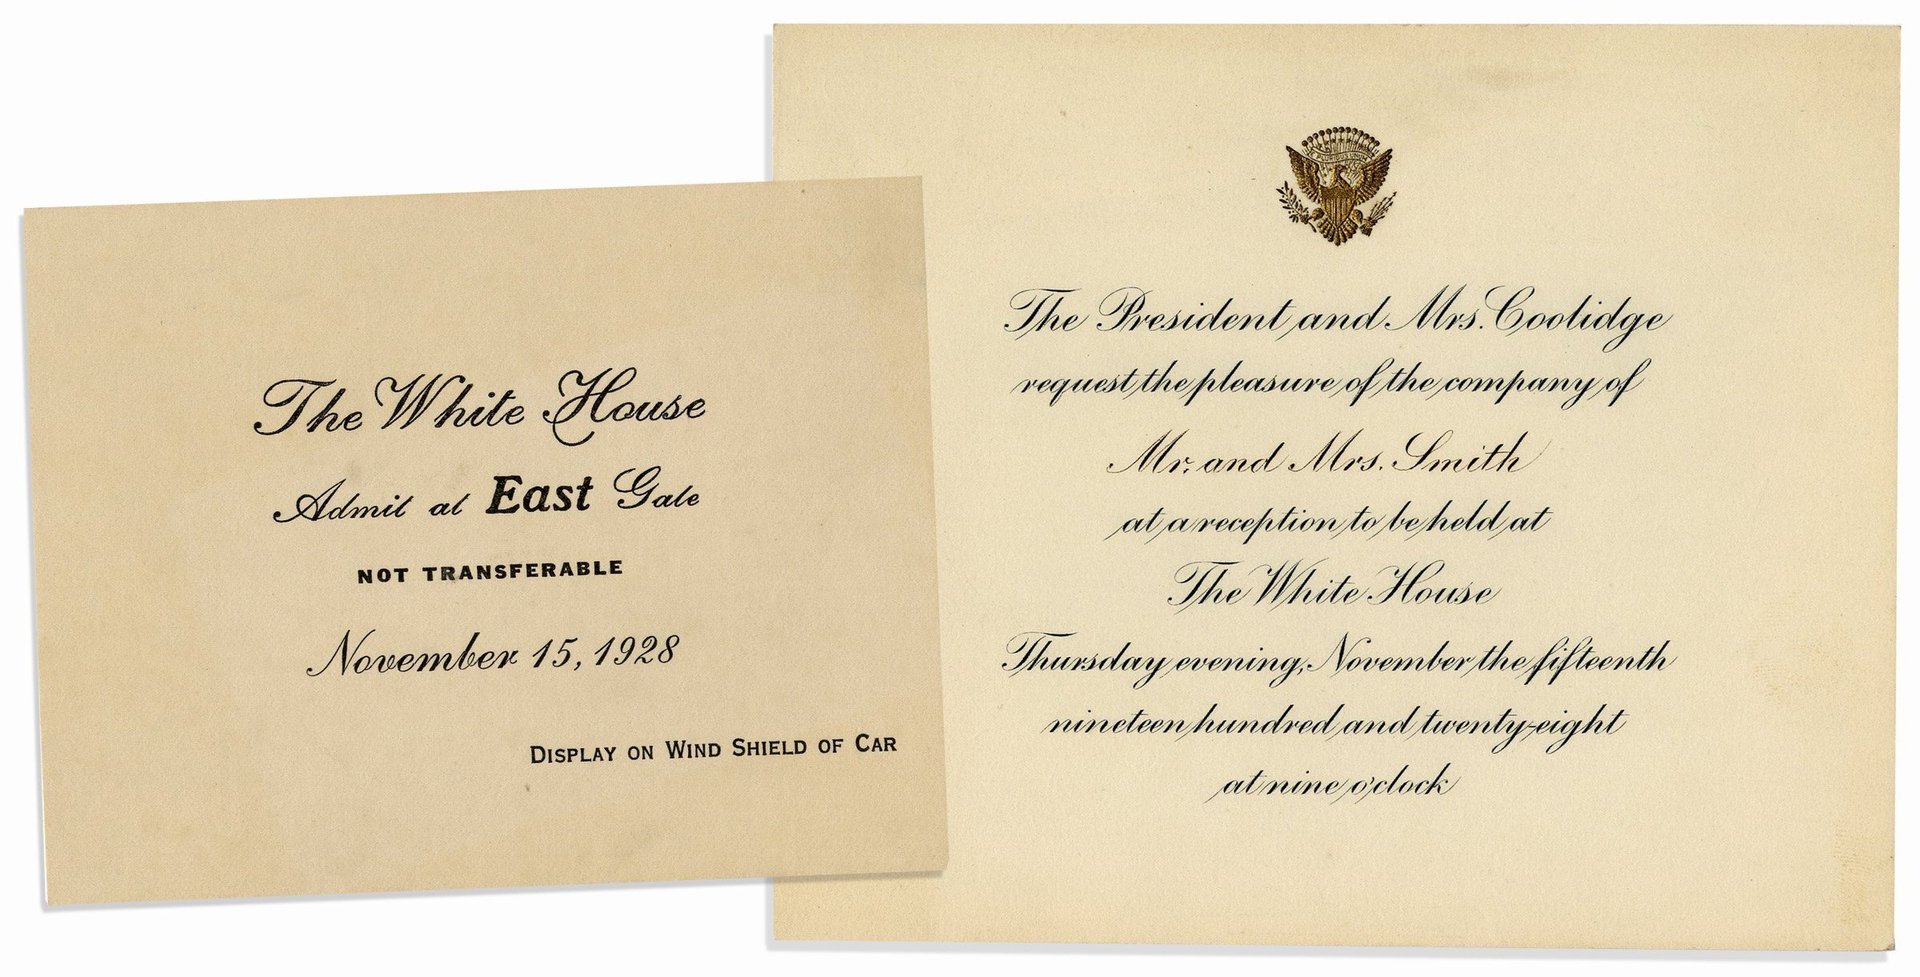 The White House
Admit at East Gate
NOT TRANSFERABLE
November 15, 1928
DISPLAY ON WIND SHIELD OF CAR
The President and Mrs. Coolidge
request the pleasure of the company of
Mr. and Mrs. Smith
at a reception to be held at
The White House
Thursday evening, November the fifteenth
nineteen hundred and twenty-eight
at nine o'clock